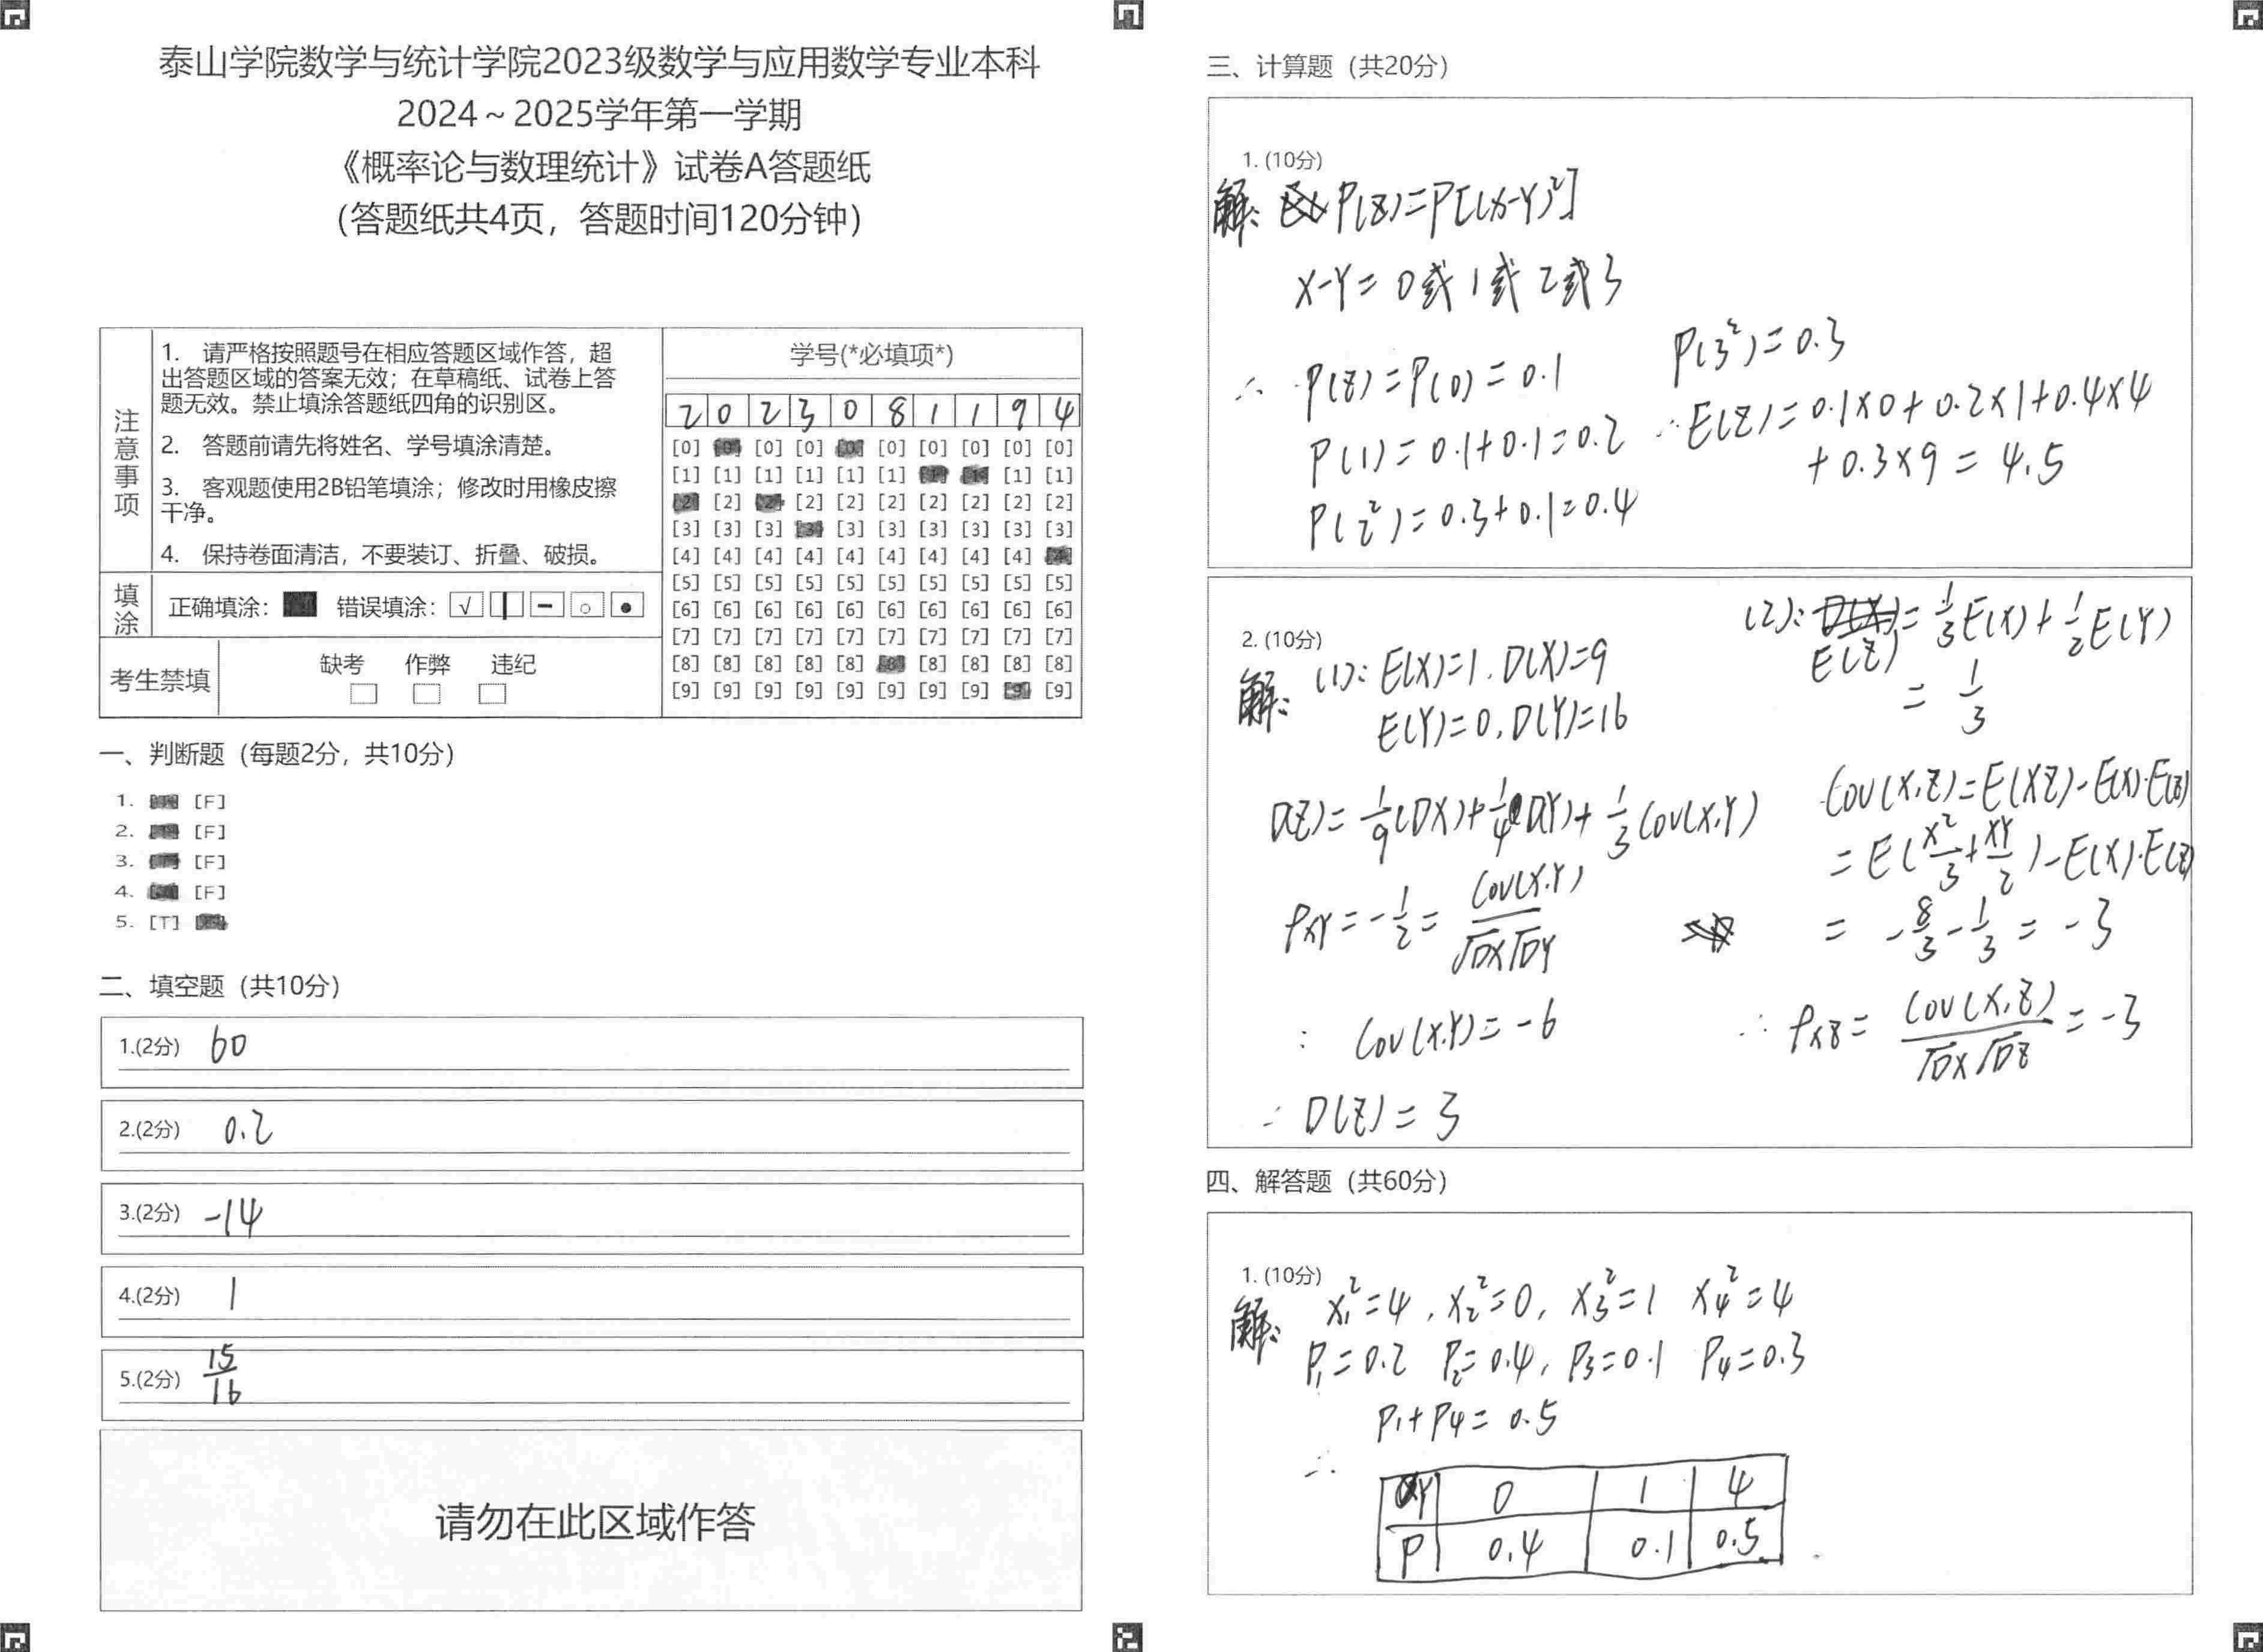 泰山学院数学与统计学院2023级数学与应用数学专业本科
2024～2025学年第一学期
《概率论与数理统计》试卷A答题纸
（答题纸共4页，答题时间120分钟）
注意事项
1. 请严格按照题号在相应答题区域作答，超
出答题区域的答案无效；在草稿纸、试卷上答
题无效。禁止填涂答题纸四角的识别区。
2. 答题前请先将姓名、学号填涂清楚。
3. 客观题使用2B铅笔填涂；修改时用橡皮擦
干净。
4. 保持卷面清洁，不要装订、折叠、破损。
填涂
正确填涂： 错误填涂：
考生禁填
缺考 作弊 违纪
学号(*必填项*)
2 0 2 3 0 8 1 1 9 4
[0] [0] [0] [0] [0] [0] [0] [0] [0] [0]
[1] [1] [1] [1] [1] [1] [1] [1] [1] [1]
[2] [2] [2] [2] [2] [2] [2] [2] [2] [2]
[3] [3] [3] [3] [3] [3] [3] [3] [3] [3]
[4] [4] [4] [4] [4] [4] [4] [4] [4] [4]
[5] [5] [5] [5] [5] [5] [5] [5] [5] [5]
[6] [6] [6] [6] [6] [6] [6] [6] [6] [6]
[7] [7] [7] [7] [7] [7] [7] [7] [7] [7]
[8] [8] [8] [8] [8] [8] [8] [8] [8] [8]
[9] [9] [9] [9] [9] [9] [9] [9] [9] [9]
一、判断题（每题2分，共10分）
1. [F]
2. [F]
3. [F]
4. [F]
5. [T]
二、填空题（共10分）
1.(2分) 60
2.(2分) 0.2
3.(2分) -14
4.(2分) 1
5.(2分) 15/16
请勿在此区域作答
三、计算题（共20分）
1. (10分)
解: P(Z)=P[(X-Y)²]
X-Y= 0或1或2或3
∴ P(Z)=P(0)=0.1
P(1)=0.1+0.1=0.2
P(2²)=0.3+0.1=0.4
P(3²)=0.3
∴ E(Z)=0.1×0+0.2×1+0.4×4
+0.3×9=4.5
2. (10分)
解: (1): E(X)=1, D(X)=9
E(Y)=0, D(Y)=16
D(Z)=1/9(DX)+1/4(DY)+1/3Cov(X,Y)
ρXY=-1/2=Cov(X,Y)/√DX√DY
∴ Cov(X,Y)=-6
∴ D(Z)=3
(2): E(Z)=1/3E(X)+1/2E(Y)
=1/3
Cov(X,Z)=E(XZ)-E(X)·E(Z)
=E(X²/3+XY/2)-E(X)·E(Z)
=-8/3-1/3=-3
∴ ρXZ=Cov(X,Z)/√DX√DZ=-3
四、解答题（共60分）
1. (10分)
解: X₁²=4, X₂²=0, X₃²=1 X₄²=4
P₁=0.2 P₂=0.4, P₃=0.1 P₄=0.3
P₁+P₄=0.5
∴
Y 0 1 4
P 0.4 0.1 0.5